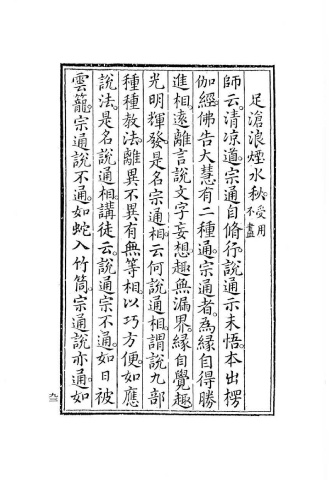 足滄浪煙水秋。受用不盡
師云。清凉道。宗通自修行。說通示未悟。本出楞
伽經。佛告大慧。有二種通。宗通者。為緣自得勝
進相。遠離言說文字妄想。趣無漏界。緣自覺趣
光明輝發。是名宗通相。云何說通相。謂說九部
種種教法。離異不異有無等相。以巧方便。如應
說法。是名說通相。講徒云。說通宗不通。如日被
雲籠。宗通說不通。如蛇入竹筒。宗通說亦通。如